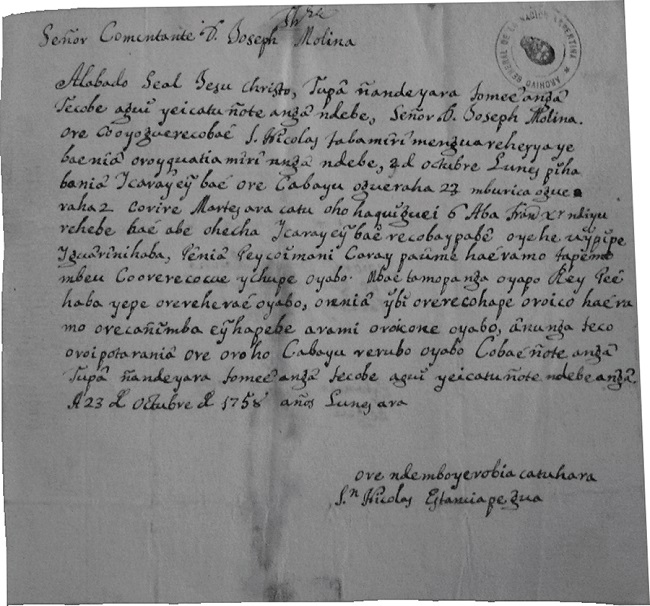 Señor Comentante D.ⁿ Joseph Molina
ARCHIVO GENERAL DE LA NACION ARGENTINA
Alabado Seal Jesu Christo, Tupâ ñandeyara tomeê angâ
tecobe aguĭ yeicatu ñote angâ ndebe, Señor D. Joseph Molina.
ore Cooyoguerecobaé S. Nicolas tabamiri mengua reheŷya ye
baeniâ oroyquatia mirî nŷgâ ndebe, 2 d octubre Lunes pĭha
baniâ Ycaraŷeŷ baé ore Cabayu ogueraha 27 mburica ogue
raha 2 corire Martes ara catu oho haguĭguei 6 Aba Frâñ Xʳ ndiyu
rehebe baé abe ohecha Ycaraŷeŷ baê recobaypabê oyehe
Yguârinihaba, Peniâ Peycoimani Caray paûme haéramo tapêmo
mbeu Coorerecocue ychupe oyabo. Mbaé tamopanga oyapo Rey Peê
haba yepe orereheraé oyabo, omniâ ŷbi orerecohape oroicó haéra
mo orecañimba eŷhapebe arami oróicone oyabo, ânunga teco
oroipotaraniâ ore oroho Cabayu rerubo oyabo Cobaé ñote angâ
Tupâ ñandeyara tomeê angâ tecobe aguĭ yeicatu ñote ndebe angâ.
A 23 d octubre d 1758 años Lunes ara
ore ndemboyerobia catuhara
S.ⁿ Nicolas Estancia pegua